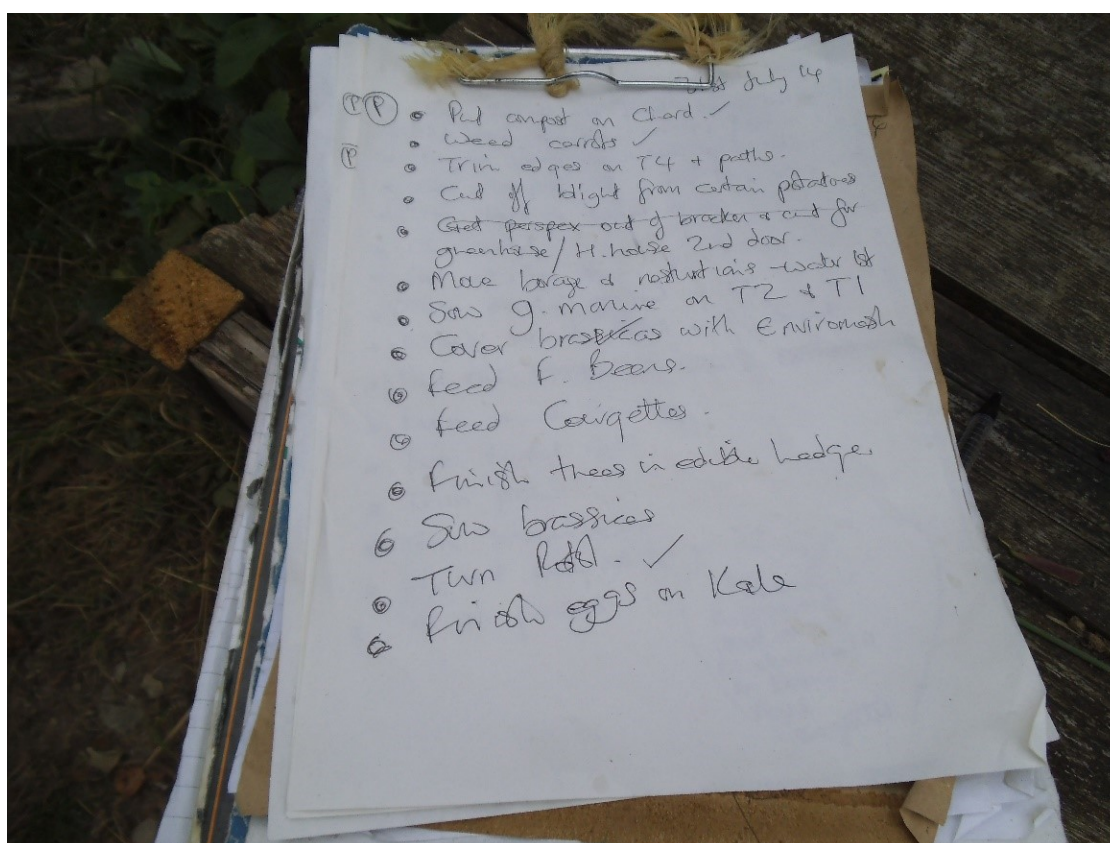 July 14
P P • Put compost on Chard. ✓
• Weed carrots ✓
P • Trim edges on T4 + paths.
• Cut off blight from certain potatoes
• Get perspex out of broken & cut for
greenhouse / H.house 2nd door.
• Move borage & nasturtians - water 1st
• Sow g. manure on T2 & T1
• Cover brassicas with Enviromesh
• Feed F. Beans.
• Feed Courgettes.
• Finish trees in edible hedge.
• Sow brassicas
• Turn ✓
• Finish eggs on Kale